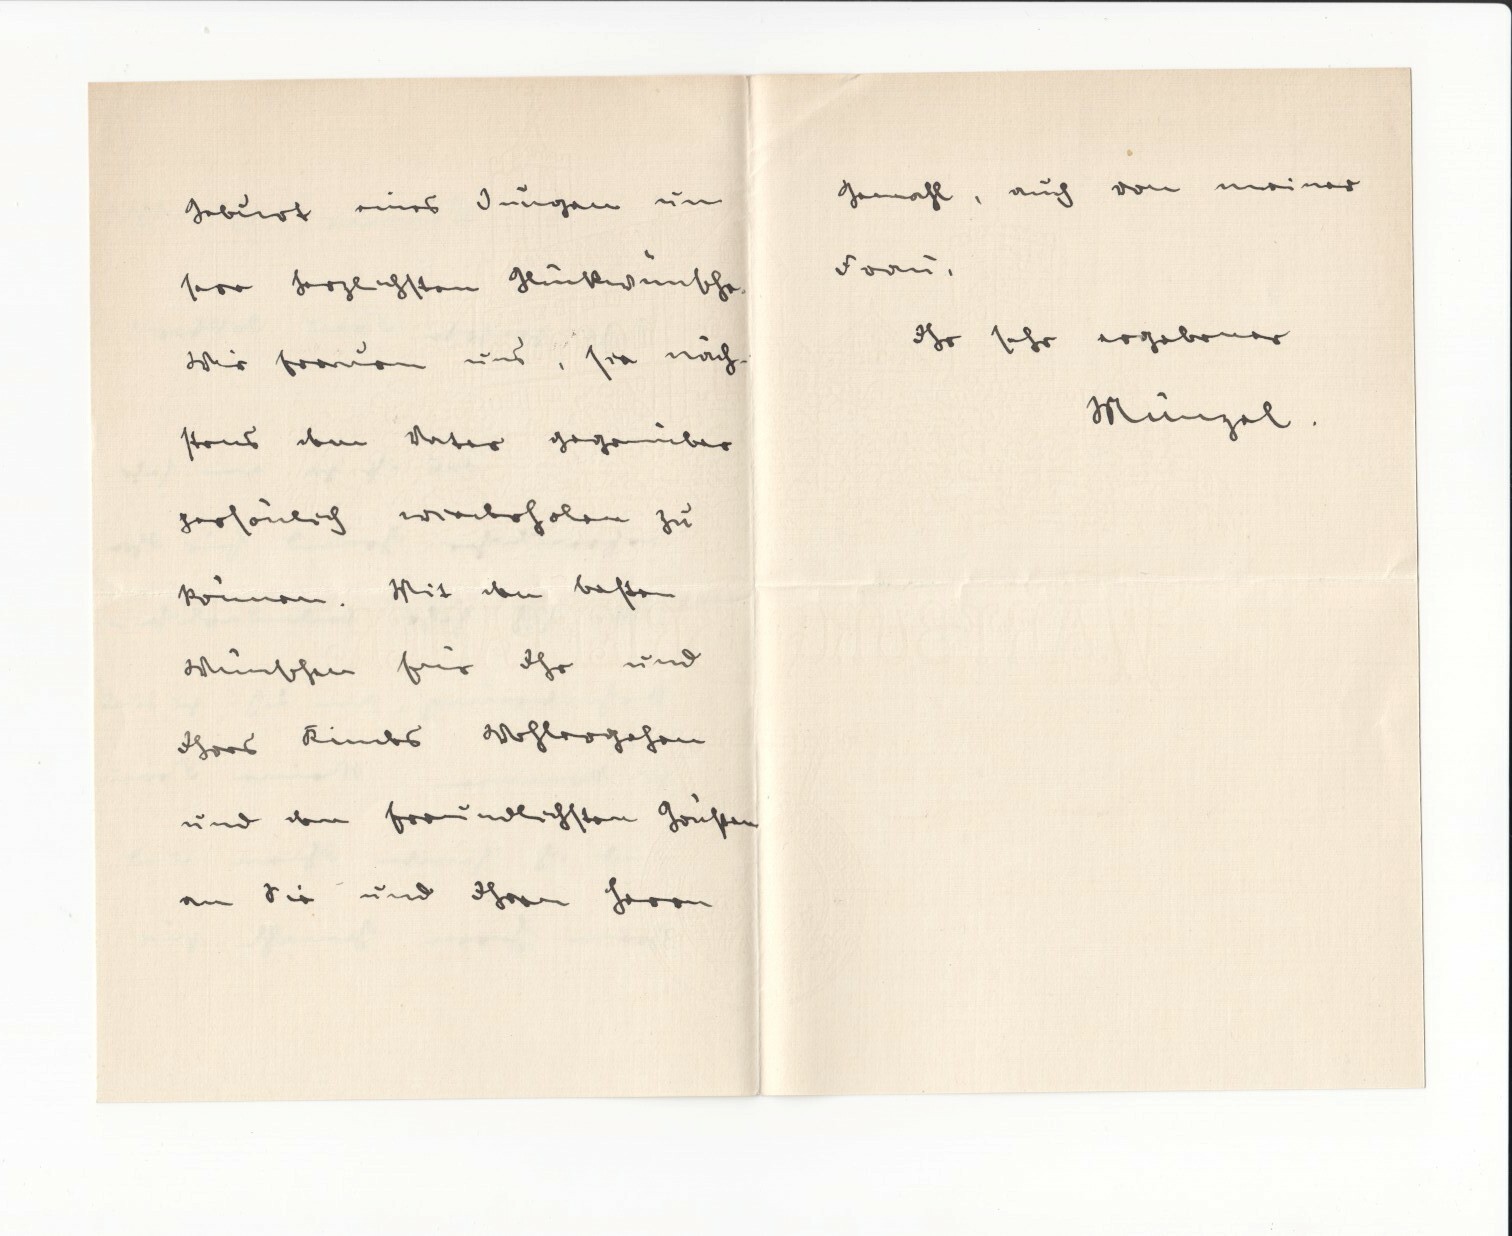 Geburt eines Jungen un
sere herzlichsten Glückwünsche.
Wir freuen uns, sie näch-
stens dem Vater gegenüber
persönlich wiederholen zu
können. Mit den besten
Wünschen für Ihr und
Ihres Kindes Wohlergehen
und den freundlichsten Grüßen
an Sie und Ihren Herrn
Gemahl, auch von meiner
Frau,
Ihr sehr ergebener
Münzel.